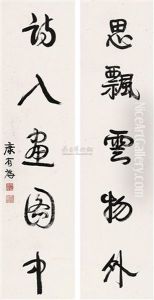 思飄雲物外
詩入畫圖中
康有為